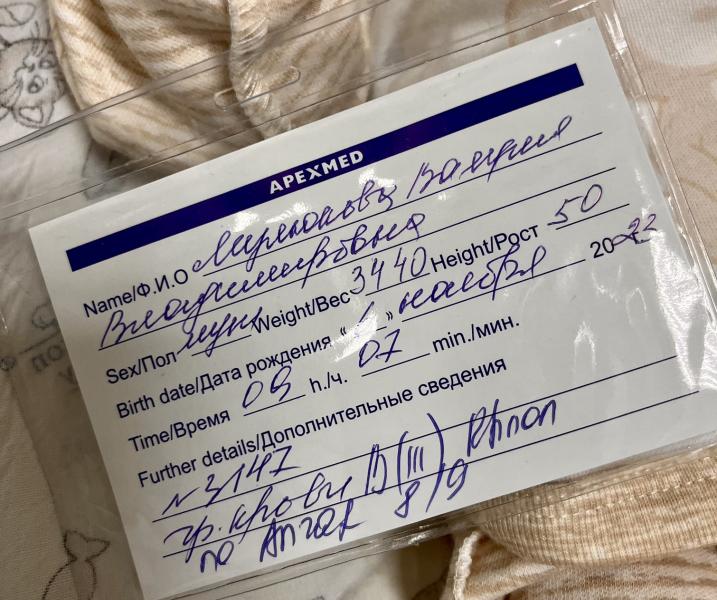 APEXMED
Name/Ф.И.О Мирюкова Валерия
Владимировна
Sex/Пол муж Weight/Вес 3440 Height/Рост 50
Birth date/Дата рождения «1» ноября 2022
Time/Время 09 h./ч. 07 min./мин.
Further details/Дополнительные сведения
N3147
гр. крови B(III) Rhпол
по Апгар 8/9